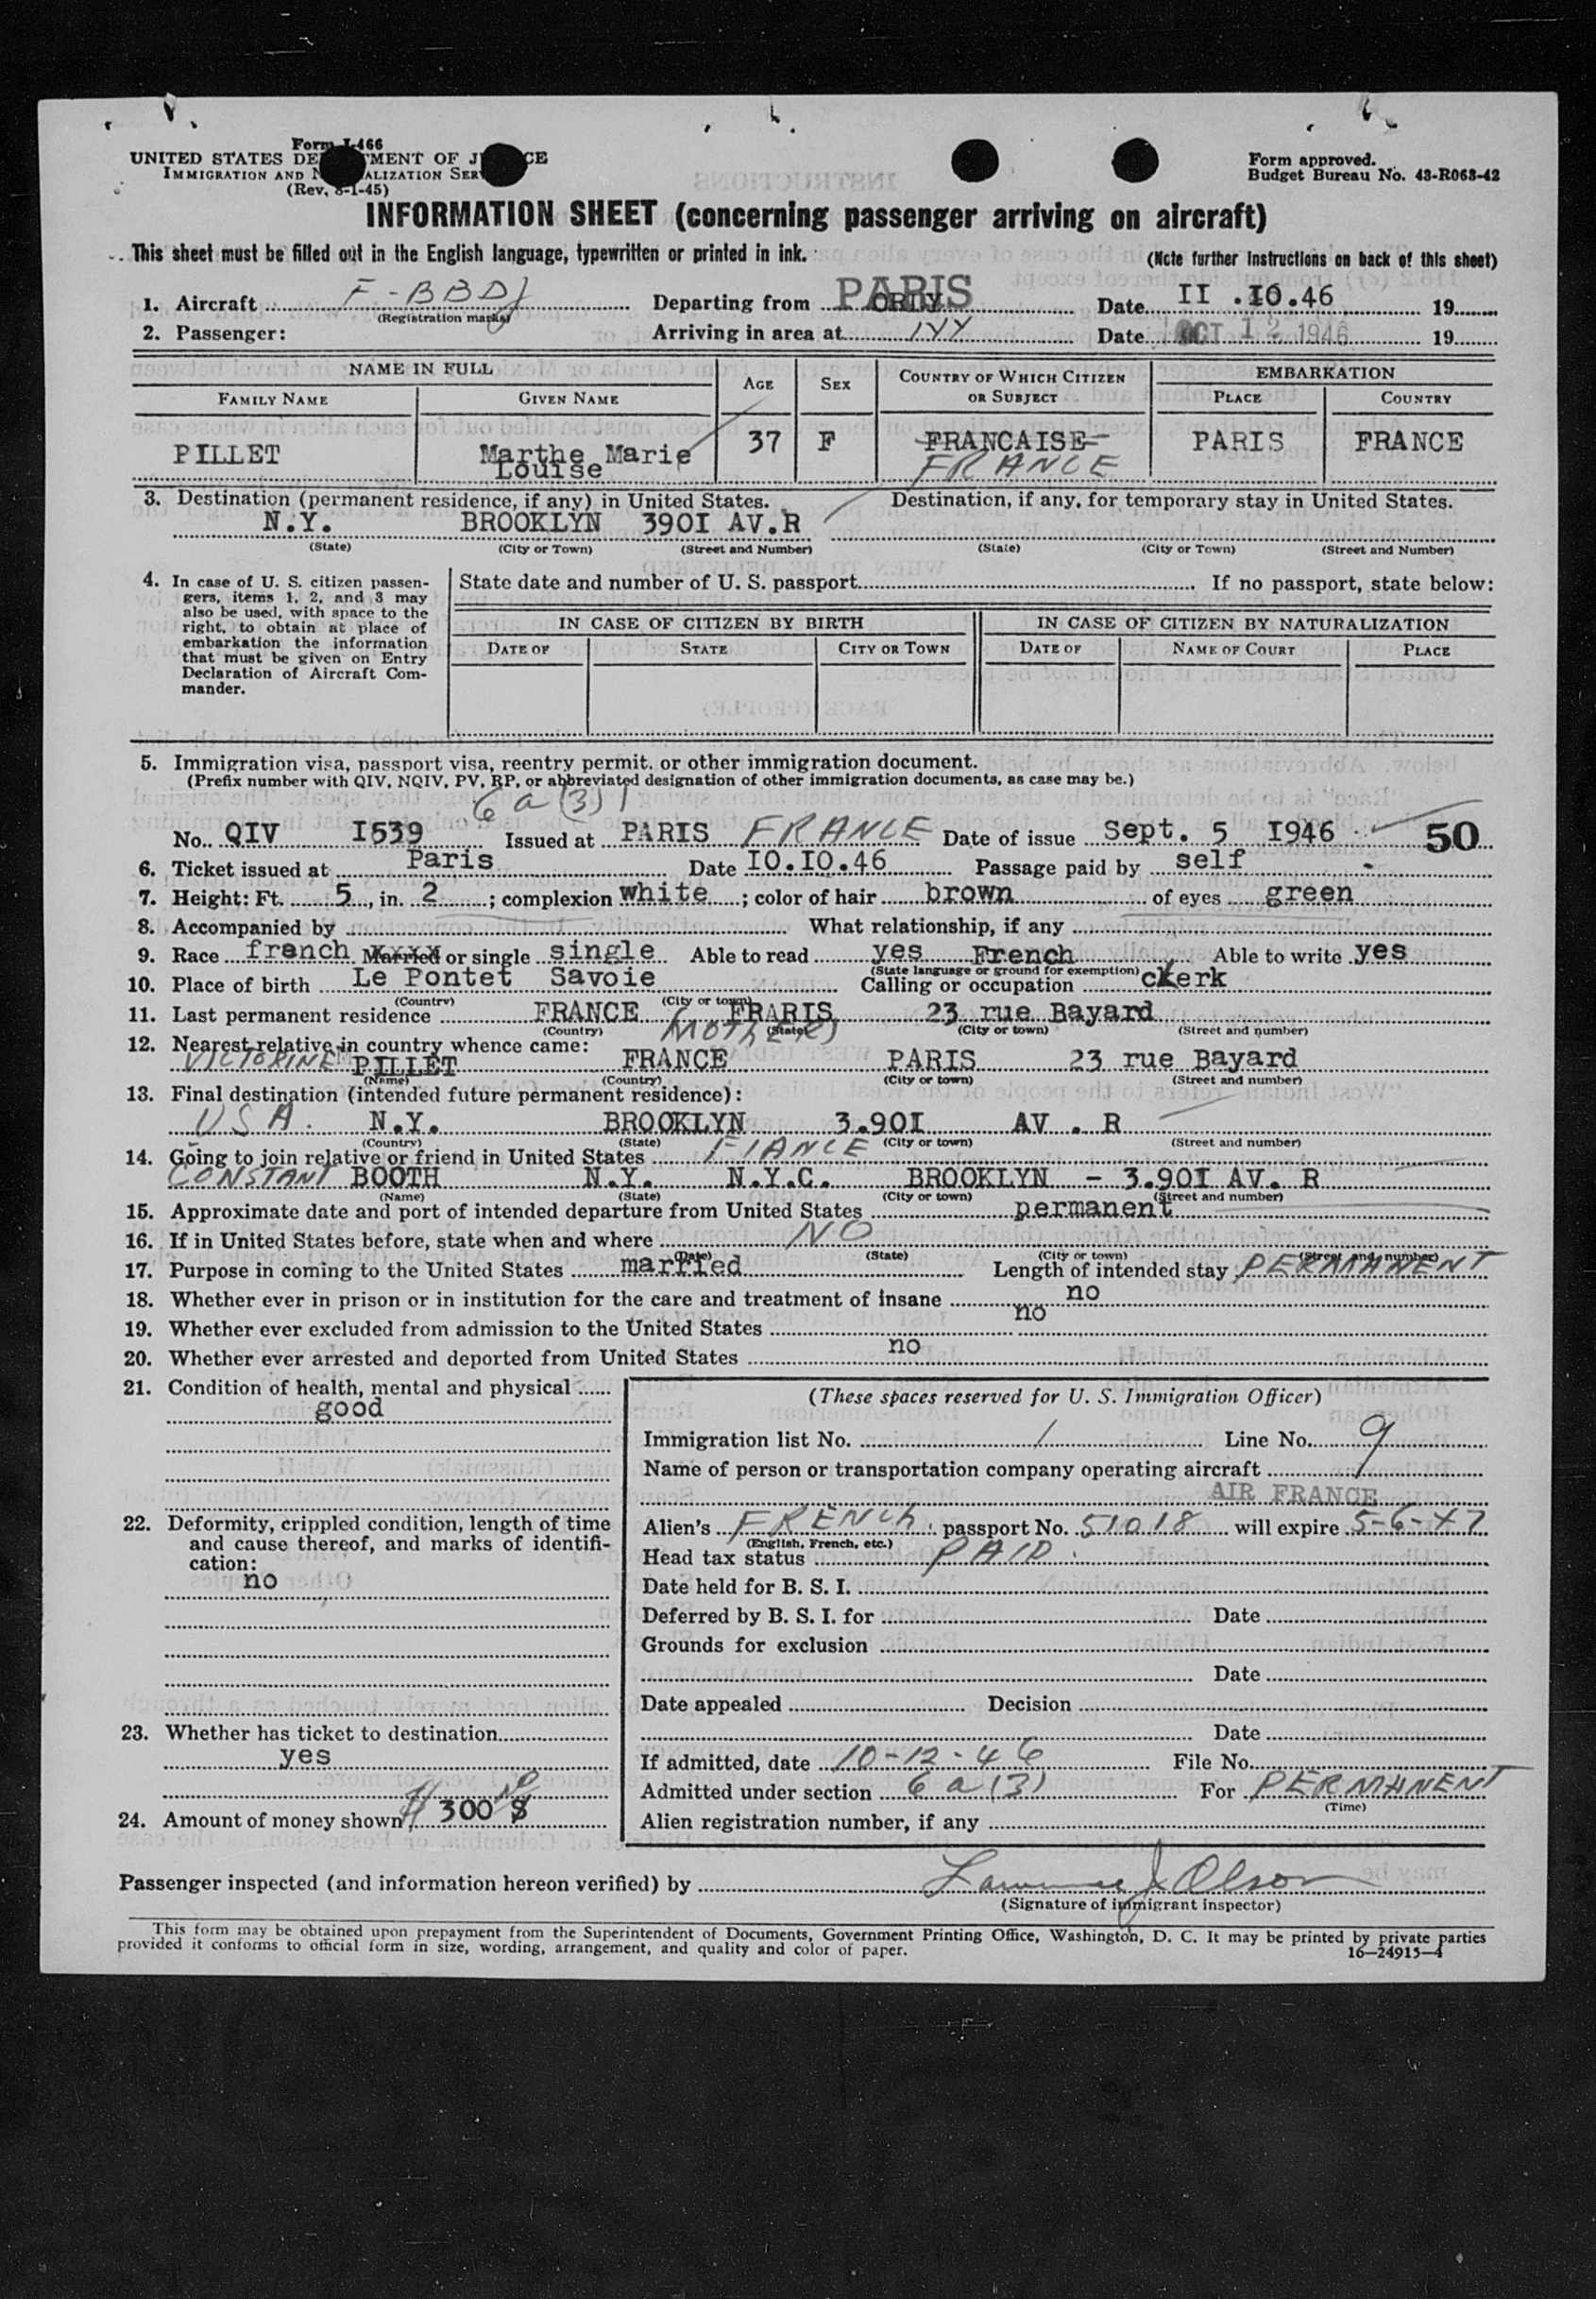 Form I-466
UNITED STATES DEPARTMENT OF JUSTICE
IMMIGRATION AND NATURALIZATION SERVICE
(Rev. 8-1-45)
Form approved.
Budget Bureau No. 43-R063-42
INFORMATION SHEET (concerning passenger arriving on aircraft)
This sheet must be filled out in the English language, typewritten or printed in ink.
(Note further instructions on back of this sheet)
1. Aircraft F-BBDJ Departing from PARIS ORLY Date II.IO.46 19
(Registration marks)
2. Passenger: Arriving in area at Date OCT 12 1946 19
NAME IN FULL AGE SEX COUNTRY OF WHICH CITIZEN OR SUBJECT EMBARKATION
FAMILY NAME GIVEN NAME PLACE COUNTRY
PILLET Marthe Marie Louise 37 F FRANCAISE FRANCE PARIS FRANCE
3. Destination (permanent residence, if any) in United States. Destination, if any, for temporary stay in United States.
N.Y. BROOKLYN 390I AV.R
(State) (City or Town) (Street and Number) (State) (City or Town) (Street and Number)
4. In case of U. S. citizen passengers, items 1, 2, and 3 may also be used, with space to the right, to obtain at place of embarkation the information that must be given on Entry Declaration of Aircraft Commander.
State date and number of U. S. passport If no passport, state below:
IN CASE OF CITIZEN BY BIRTH IN CASE OF CITIZEN BY NATURALIZATION
DATE OF STATE CITY OR TOWN DATE OF NAME OF COURT PLACE
5. Immigration visa, passport visa, reentry permit, or other immigration document.
(Prefix number with QIV, NQIV, PV, RP, or abbreviated designation of other immigration documents, as case may be.)
6a(3)
No. QIV I539 Issued at PARIS FRANCE Date of issue Sept. 5 I946 50
6. Ticket issued at Paris Date IO.IO.46 Passage paid by self
7. Height: Ft. 5, in. 2; complexion white; color of hair brown of eyes green
8. Accompanied by What relationship, if any
9. Race french Married xxxx or single single Able to read yes French Able to write yes
(State language or ground for exemption)
10. Place of birth Le Pontet Savoie Calling or occupation clerk
(Country) (City or town)
11. Last permanent residence FRANCE PARIS 23 rue Bayard
(Country) (State) (City or town) (Street and number)
12. Nearest relative in country whence came: MOTHER)
VICTORINE PILLET FRANCE PARIS 23 rue Bayard
(Name) (Country) (City or town) (Street and number)
13. Final destination (intended future permanent residence):
USA. N.Y. BROOKLYN 3.90I AV . R
(Country) (State) (City or town) (Street and number)
14. Going to join relative or friend in United States FIANCE
CONSTANT BOOTH N.Y. N.Y.C. BROOKLYN - 3.90I AV. R
(Name) (State) (City or town) (Street and number)
15. Approximate date and port of intended departure from United States permanent
16. If in United States before, state when and where NO
(Date) (State) (City or town) (Street and number)
17. Purpose in coming to the United States married Length of intended stay PERMANENT
18. Whether ever in prison or in institution for the care and treatment of insane no
19. Whether ever excluded from admission to the United States no
20. Whether ever arrested and deported from United States no
21. Condition of health, mental and physical
good
22. Deformity, crippled condition, length of time and cause thereof, and marks of identification:
no
23. Whether has ticket to destination
yes
24. Amount of money shown 300 $
(These spaces reserved for U. S. Immigration Officer)
Immigration list No. 1 Line No. 9
Name of person or transportation company operating aircraft
AIR FRANCE
Alien's FRENCH passport No. 51018 will expire 5-6-47
(English, French, etc.)
Head tax status PAID
Date held for B. S. I.
Deferred by B. S. I. for Date
Grounds for exclusion
Date
Date appealed Decision
Date
If admitted, date 10-12-46 File No.
Admitted under section 6a(3) For PERMANENT
(Time)
Alien registration number, if any
Passenger inspected (and information hereon verified) by Lawrence J Olson
(Signature of immigrant inspector)
This form may be obtained upon prepayment from the Superintendent of Documents, Government Printing Office, Washington, D. C. It may be printed by private parties
provided it conforms to official form in size, wording, arrangement, and quality and color of paper.
16—24915-4